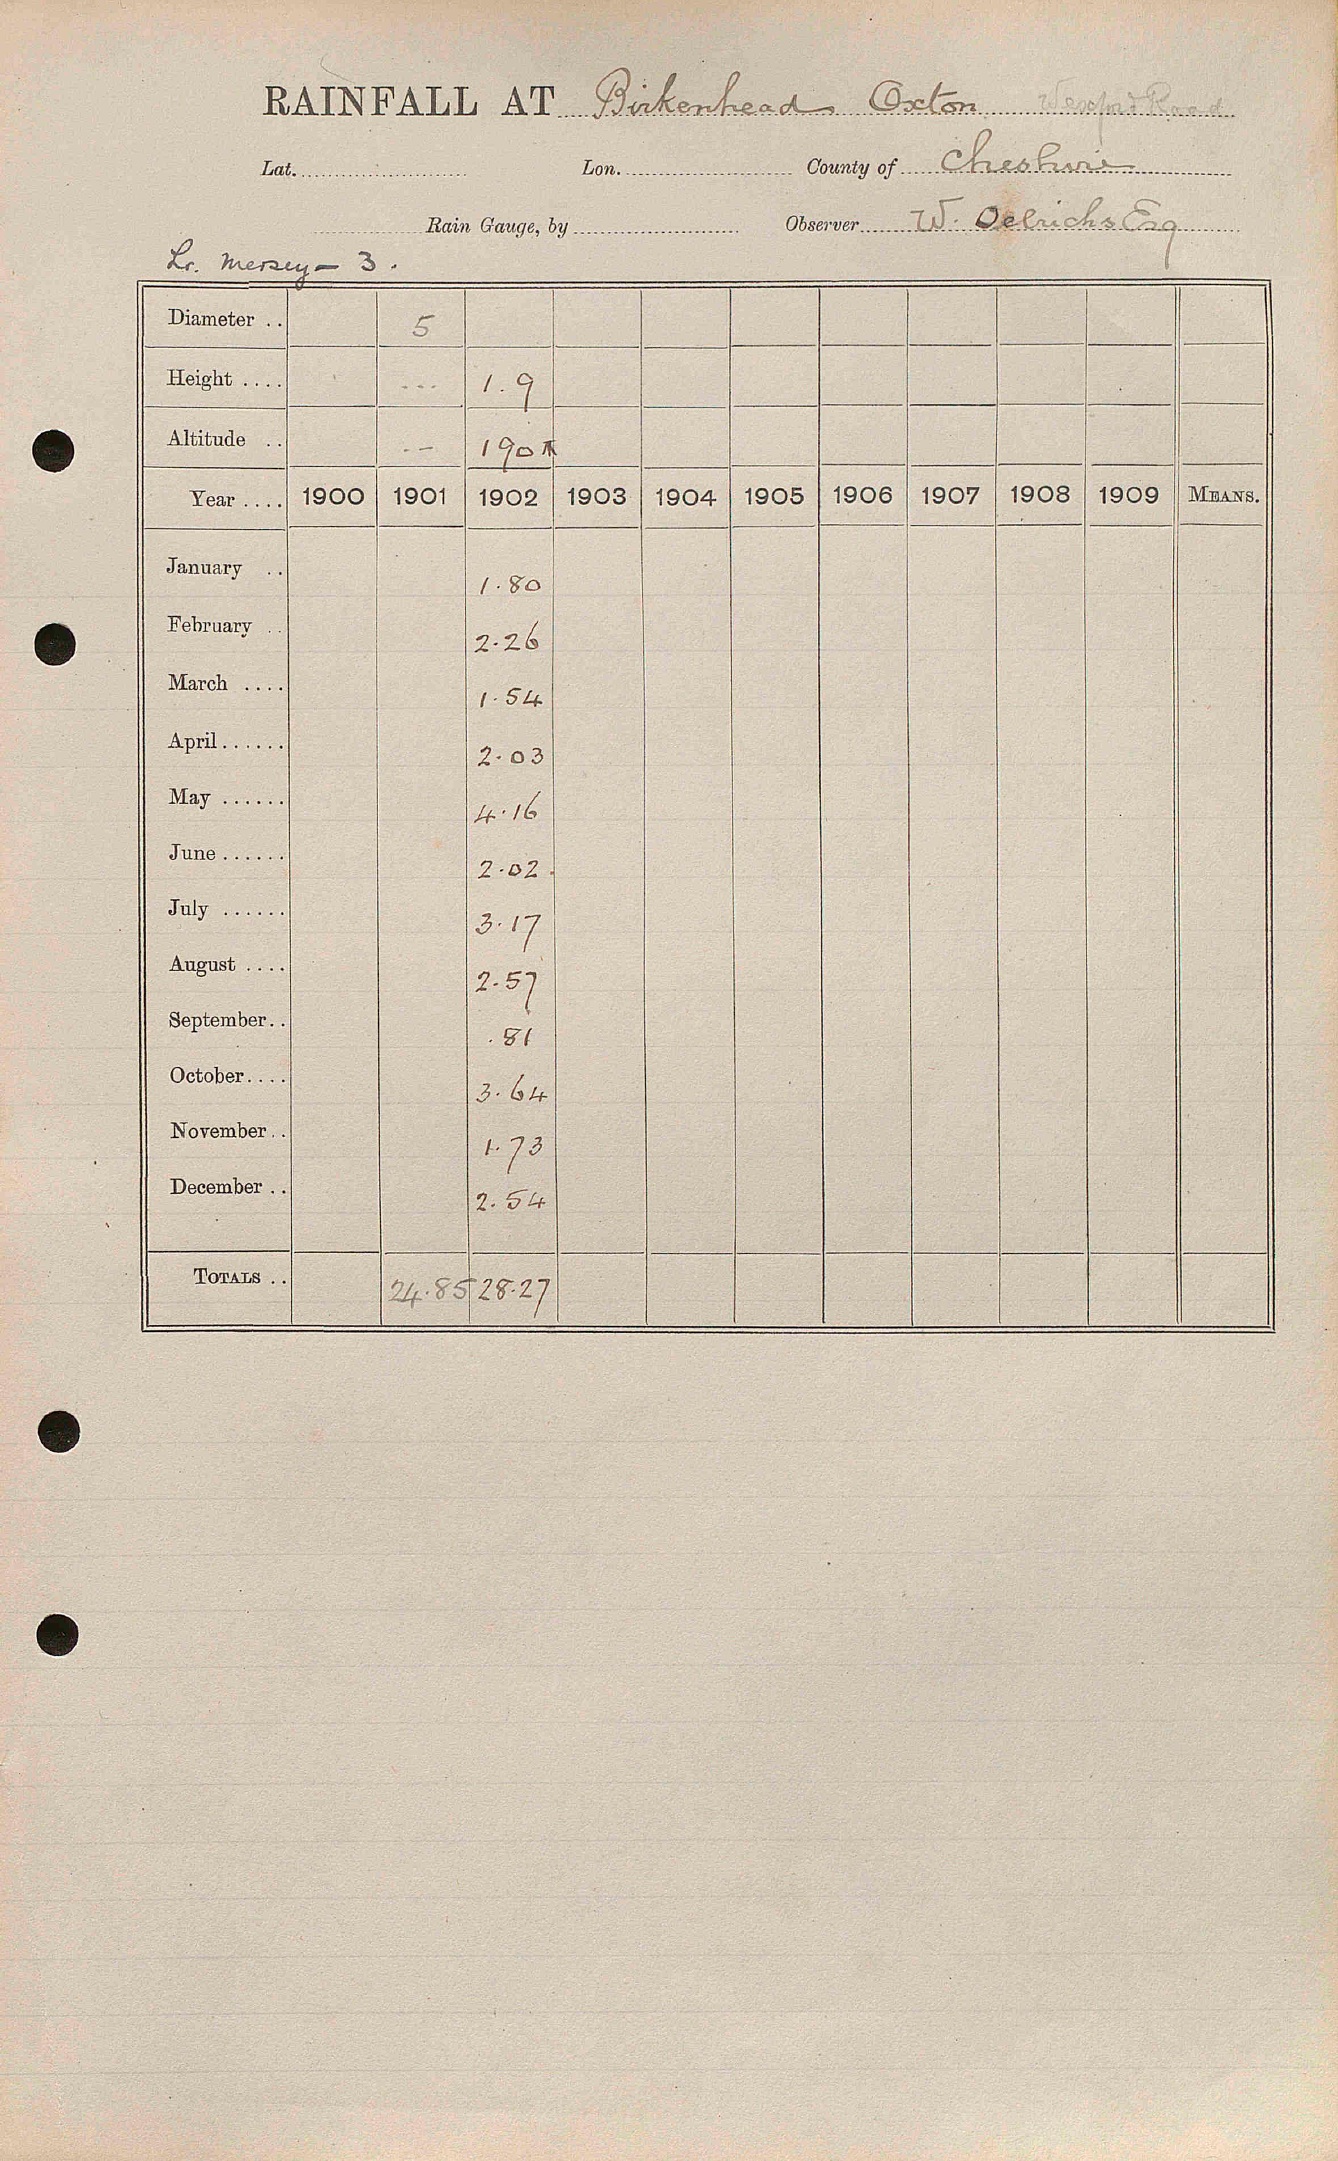 RAINFALL AT Birkenhead Oxton Wexford Road
Lat. Lon. County of Cheshire
Rain Gauge, by Observer W. Oelrichs Esq
Lr. Mersey - 3.
Diameter .. 5
Height .... --- 1.9
Altitude .. -- 190
Year .... 1900 1901 1902 1903 1904 1905 1906 1907 1908 1909 MEANS.
January .. 1.80
February .. 2.26
March .... 1.54
April ...... 2.03
May ...... 4.16
June ...... 2.02.
July ...... 3.17
August .... 2.57
September .. .81
October .... 3.64
November .. 1.73
December .. 2.54
TOTALS .. 24.85 28.27